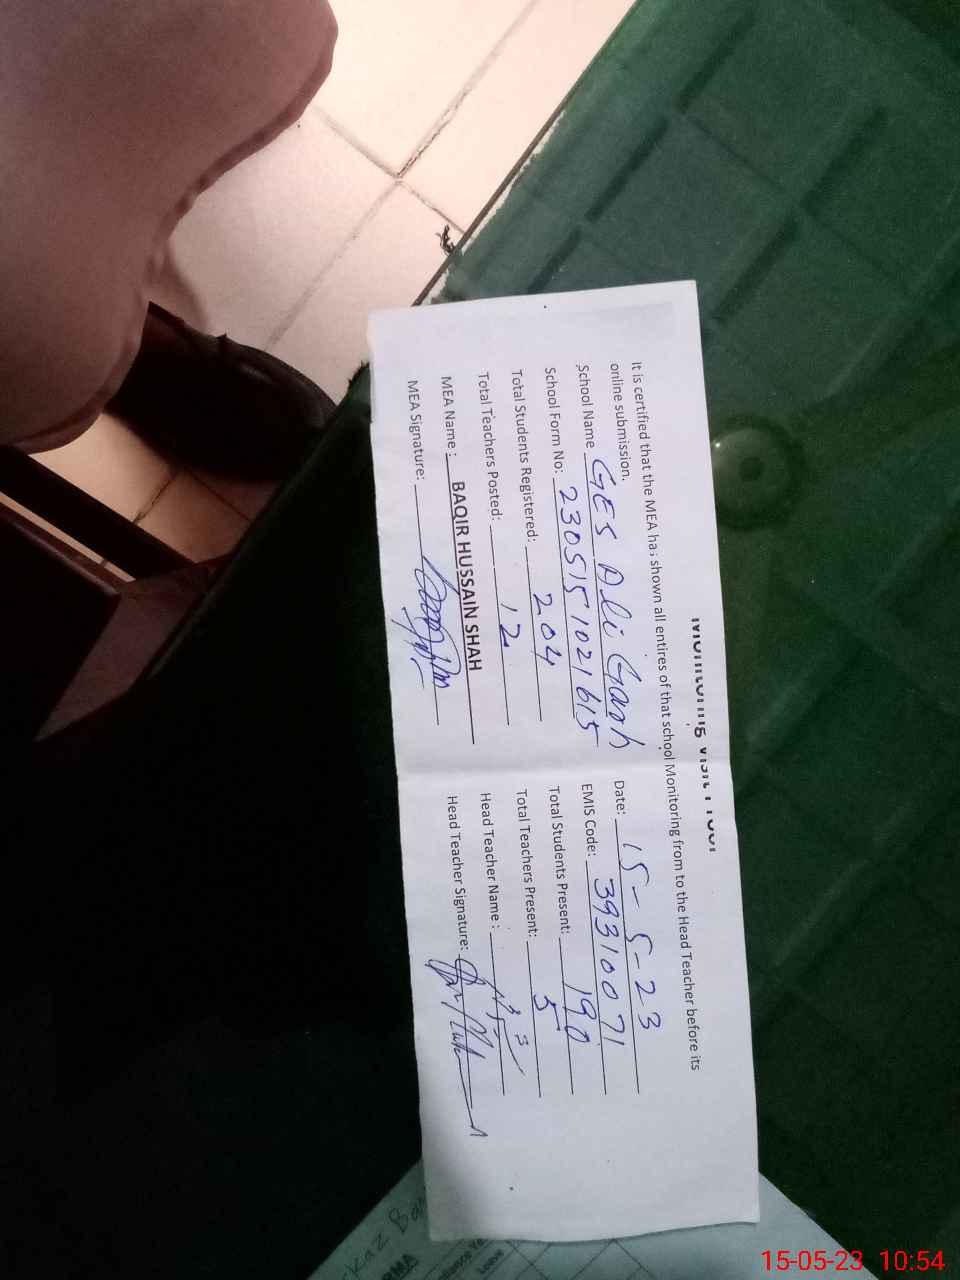 Monitoring Visit Proof
It is certified that the MEA has shown all entires of that school Monitoring from to the Head Teacher before its
online submission.
School Name GES Ali Garh Date: 15-5-23
School Form No: 2305151021615 EMIS Code: 39310071
Total Students Registered: 204 Total Students Present: 190
Total Teachers Posted: 12 Total Teachers Present: 5
MEA Name : BAQIR HUSSAIN SHAH Head Teacher Name :
MEA Signature: Head Teacher Signature:
15-05-23 10:54